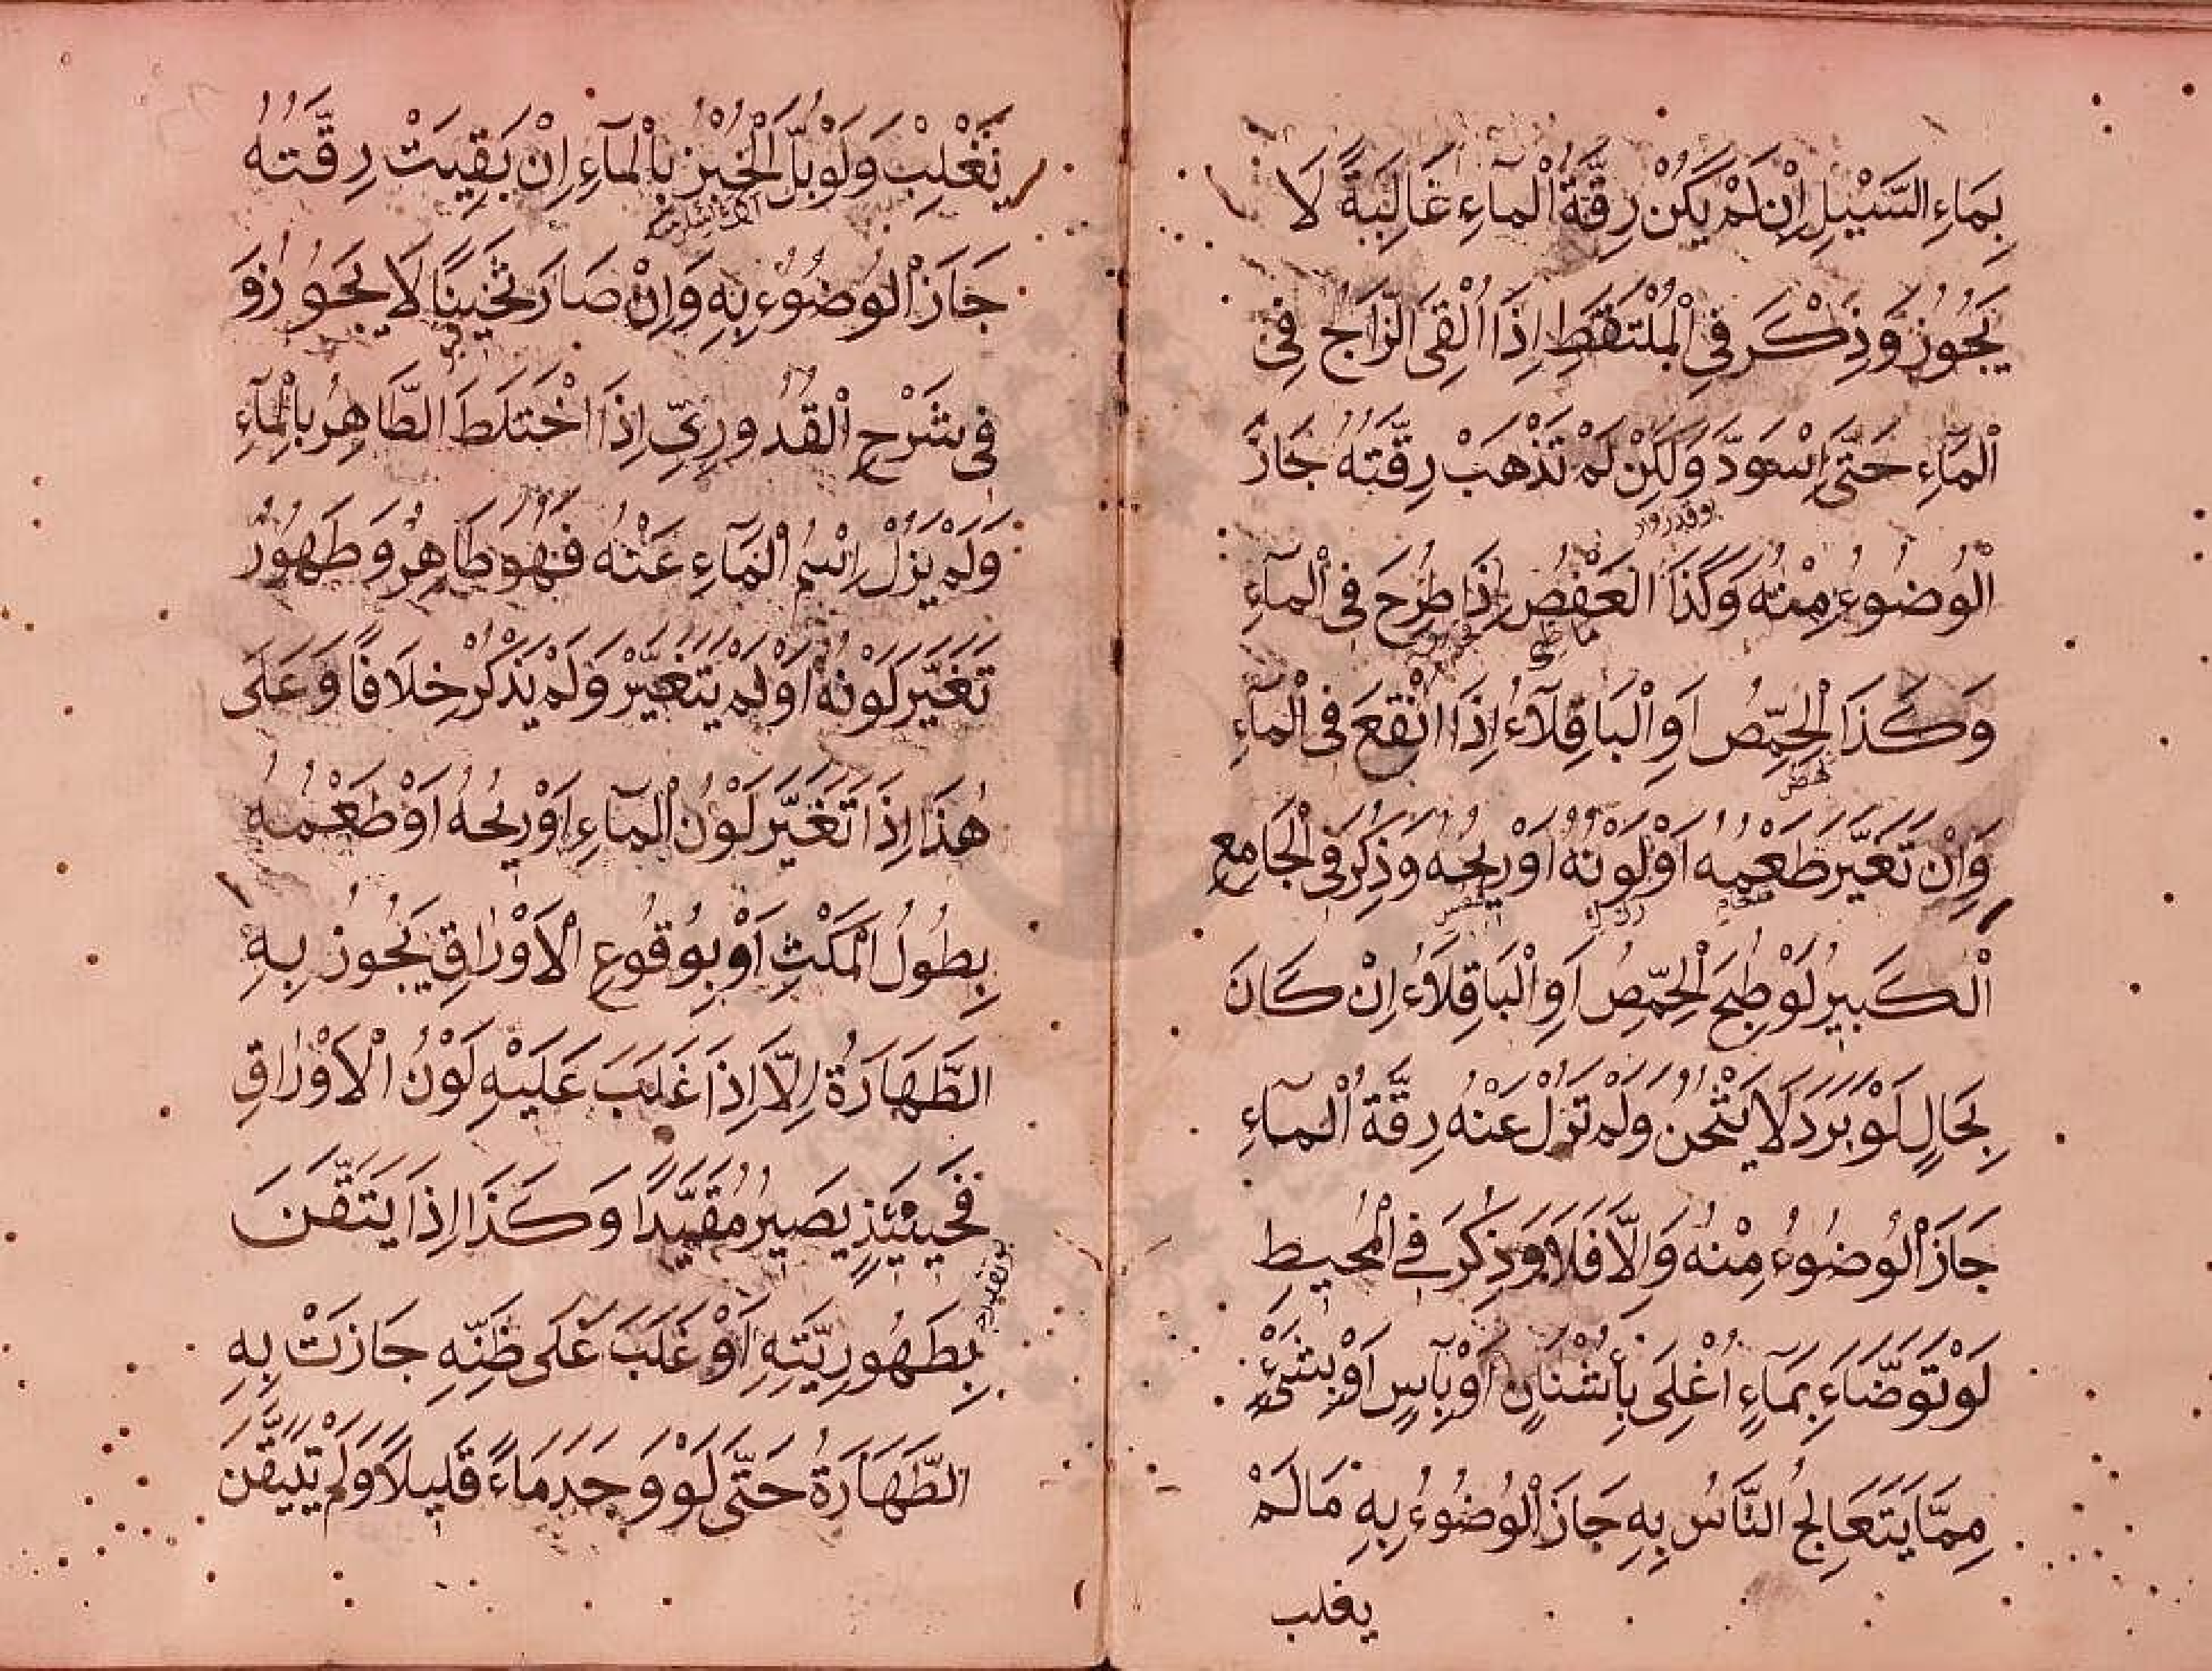 بِمَاءِ السَّيْلِ اِنْ لَمْ يَكُنْ رِقَّةُ الْمَاءِ غَالِبَةً لَا
يَجُوزُ وَذَكَرَ فِي الْمُلْتَقَطِ اِذَا اُلْقِيَ الزَّاجُ فِي
الْمَاءِ حَتَّى اِسْوَدَّ وَلَكِنْ لَمْ تَذْهَبْ رِقَّتُهُ جَازَ
الْوُضُوءُ مِنْهُ وَكَذَا الْعَفْصُ اِذَا طُرِحَ فِي الْمَاءِ
وَكَذَا الْحِمِّصُ اَوِ الْبَاقِلَاءُ اِذَا انْقَعَ فِي الْمَاءِ
حمص
وَاِنْ تَغَيَّرَ طَعْمُهُ اَوْ لَوْنُهُ اَوْ رِيحُهُ وَذَكَرَ فِي الْجَامِعِ
الْكَبِيرِ لَوْ طُبِخَ الْحِمِّصُ اَوِ الْبَاقِلَاءُ اِنْ كَانَ
بِحَالٍ لَوْ بَرَدَ لَا يَثْخُنُ وَلَمْ تَزُلْ عَنْهُ رِقَّةُ الْمَاءِ
جَازَ الْوُضُوءُ مِنْهُ وَاِلَّا فَلَا وَذَكَرَ فِي الْمُحِيطِ
لَوْ تَوَضَّاءَ بِمَاءٍ اُغْلِىَ بِأُشْنَانٍ اَوْ بِآسٍ اَوْ بِشَيْءٍ
مِمَّا يَتَعَالَجُ النَّاسُ بِهِ جَازَ الْوُضُوءُ بِهِ مَا لَمْ
يغلب
يَغْلِبْ وَلَوْ بَلَّ الْخُبْزَ بِالْمَاءِ اِنْ بَقِيَتْ رِقَّتُهُ
جَازَ الْوُضُوءُ بِهِ وَاِنْ صَارَ ثَخِينًا لَا يَجُوزُ وَ
فِي شَرْحِ الْقُدُورِيِّ اِذَا اخْتَلَطَ الطَّاهِرُ بِالْمَاءِ
وَلَمْ يَزُلْ اِسْمُ الْمَاءِ عَنْهُ فَهُوَ طَاهِرٌ وَطَهُورٌ
تَغَيَّرَ لَوْنُهُ اَوْ لَمْ يَتَغَيَّرْ وَلَمْ يَذْكُرْ خِلَافًا وَعَلَى
هٰذَا اِذَا تَغَيَّرَ لَوْنُ الْمَاءِ اَوْ رِيحُهُ اَوْ طَعْمُهُ
بِطُولِ الْمَكْثِ اَوْ بِوُقُوعِ الْاَوْرَاقِ يَجُوزُ بِهِ
الطَّهَارَةُ اِلَّا اِذَا غَلَبَ عَلَيْهِ لَوْنُ الْاَوْرَاقِ
فَحِينَئِذٍ يَصِيرُ مُقَيَّدًا وَكَذَا اِذَا يَتَقَّنَ
بِطَهُورِيَّتِهِ اَوْ غَلَبَ عَلَى ظَنِّهِ جَازَتْ بِهِ
الطَّهَارَةُ حَتَّى لَوْ وَجَدَ مَاءً قَلِيلًا وَلَمْ يَتَيَقَّنْ